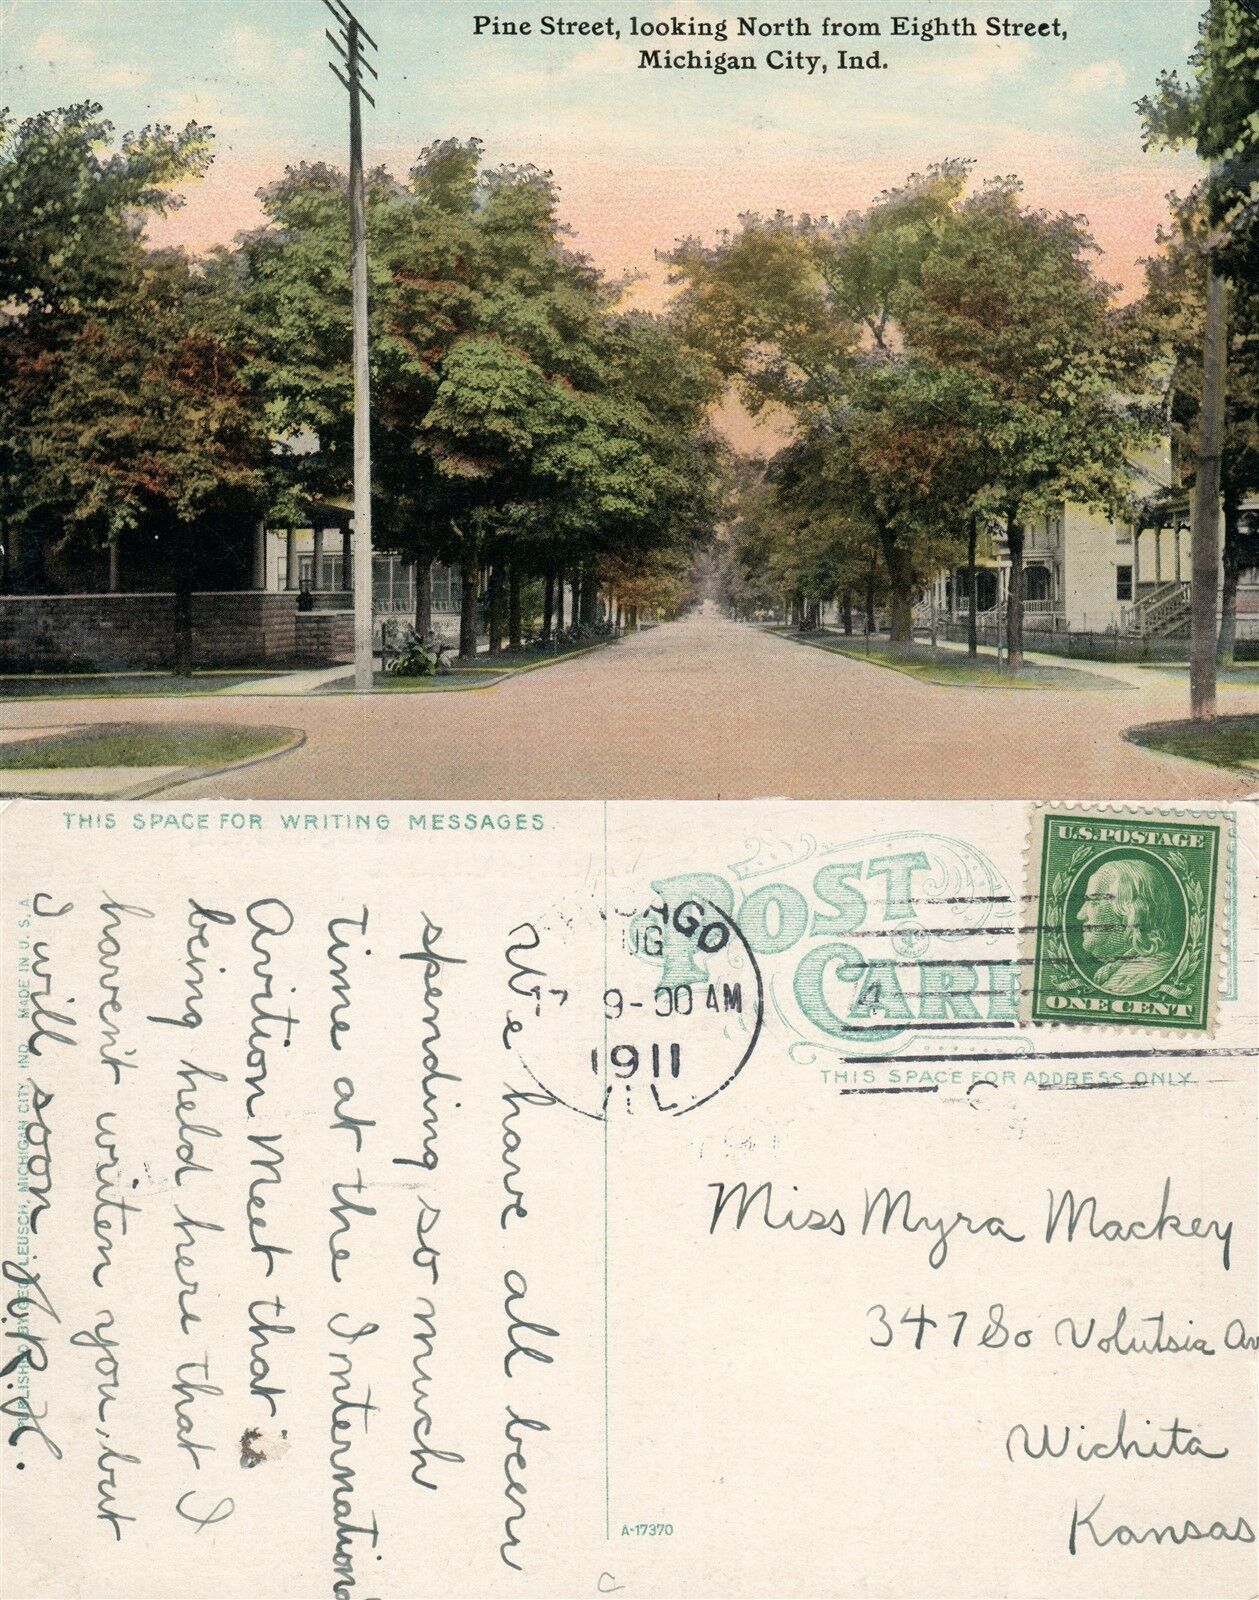 Pine Street, looking North from Eighth Street,
Michigan City, Ind.
THIS SPACE FOR WRITING MESSAGES.
POST CARD
U.S. POSTAGE
ONE CENT
9-00 AM
1911
ILL.
THIS SPACE FOR ADDRESS ONLY
We have all been
spending so much
time at the International
Avition Meet that is
being held here that I
haven't writen you, but
I will soon.
Miss Myra Mackey
347 So Volutsia Av
Wichita
Kansas
PUBLISHED BY GEO. LEUSCH, MICHIGAN CITY, IND. MADE IN U.S.A.
A-17370